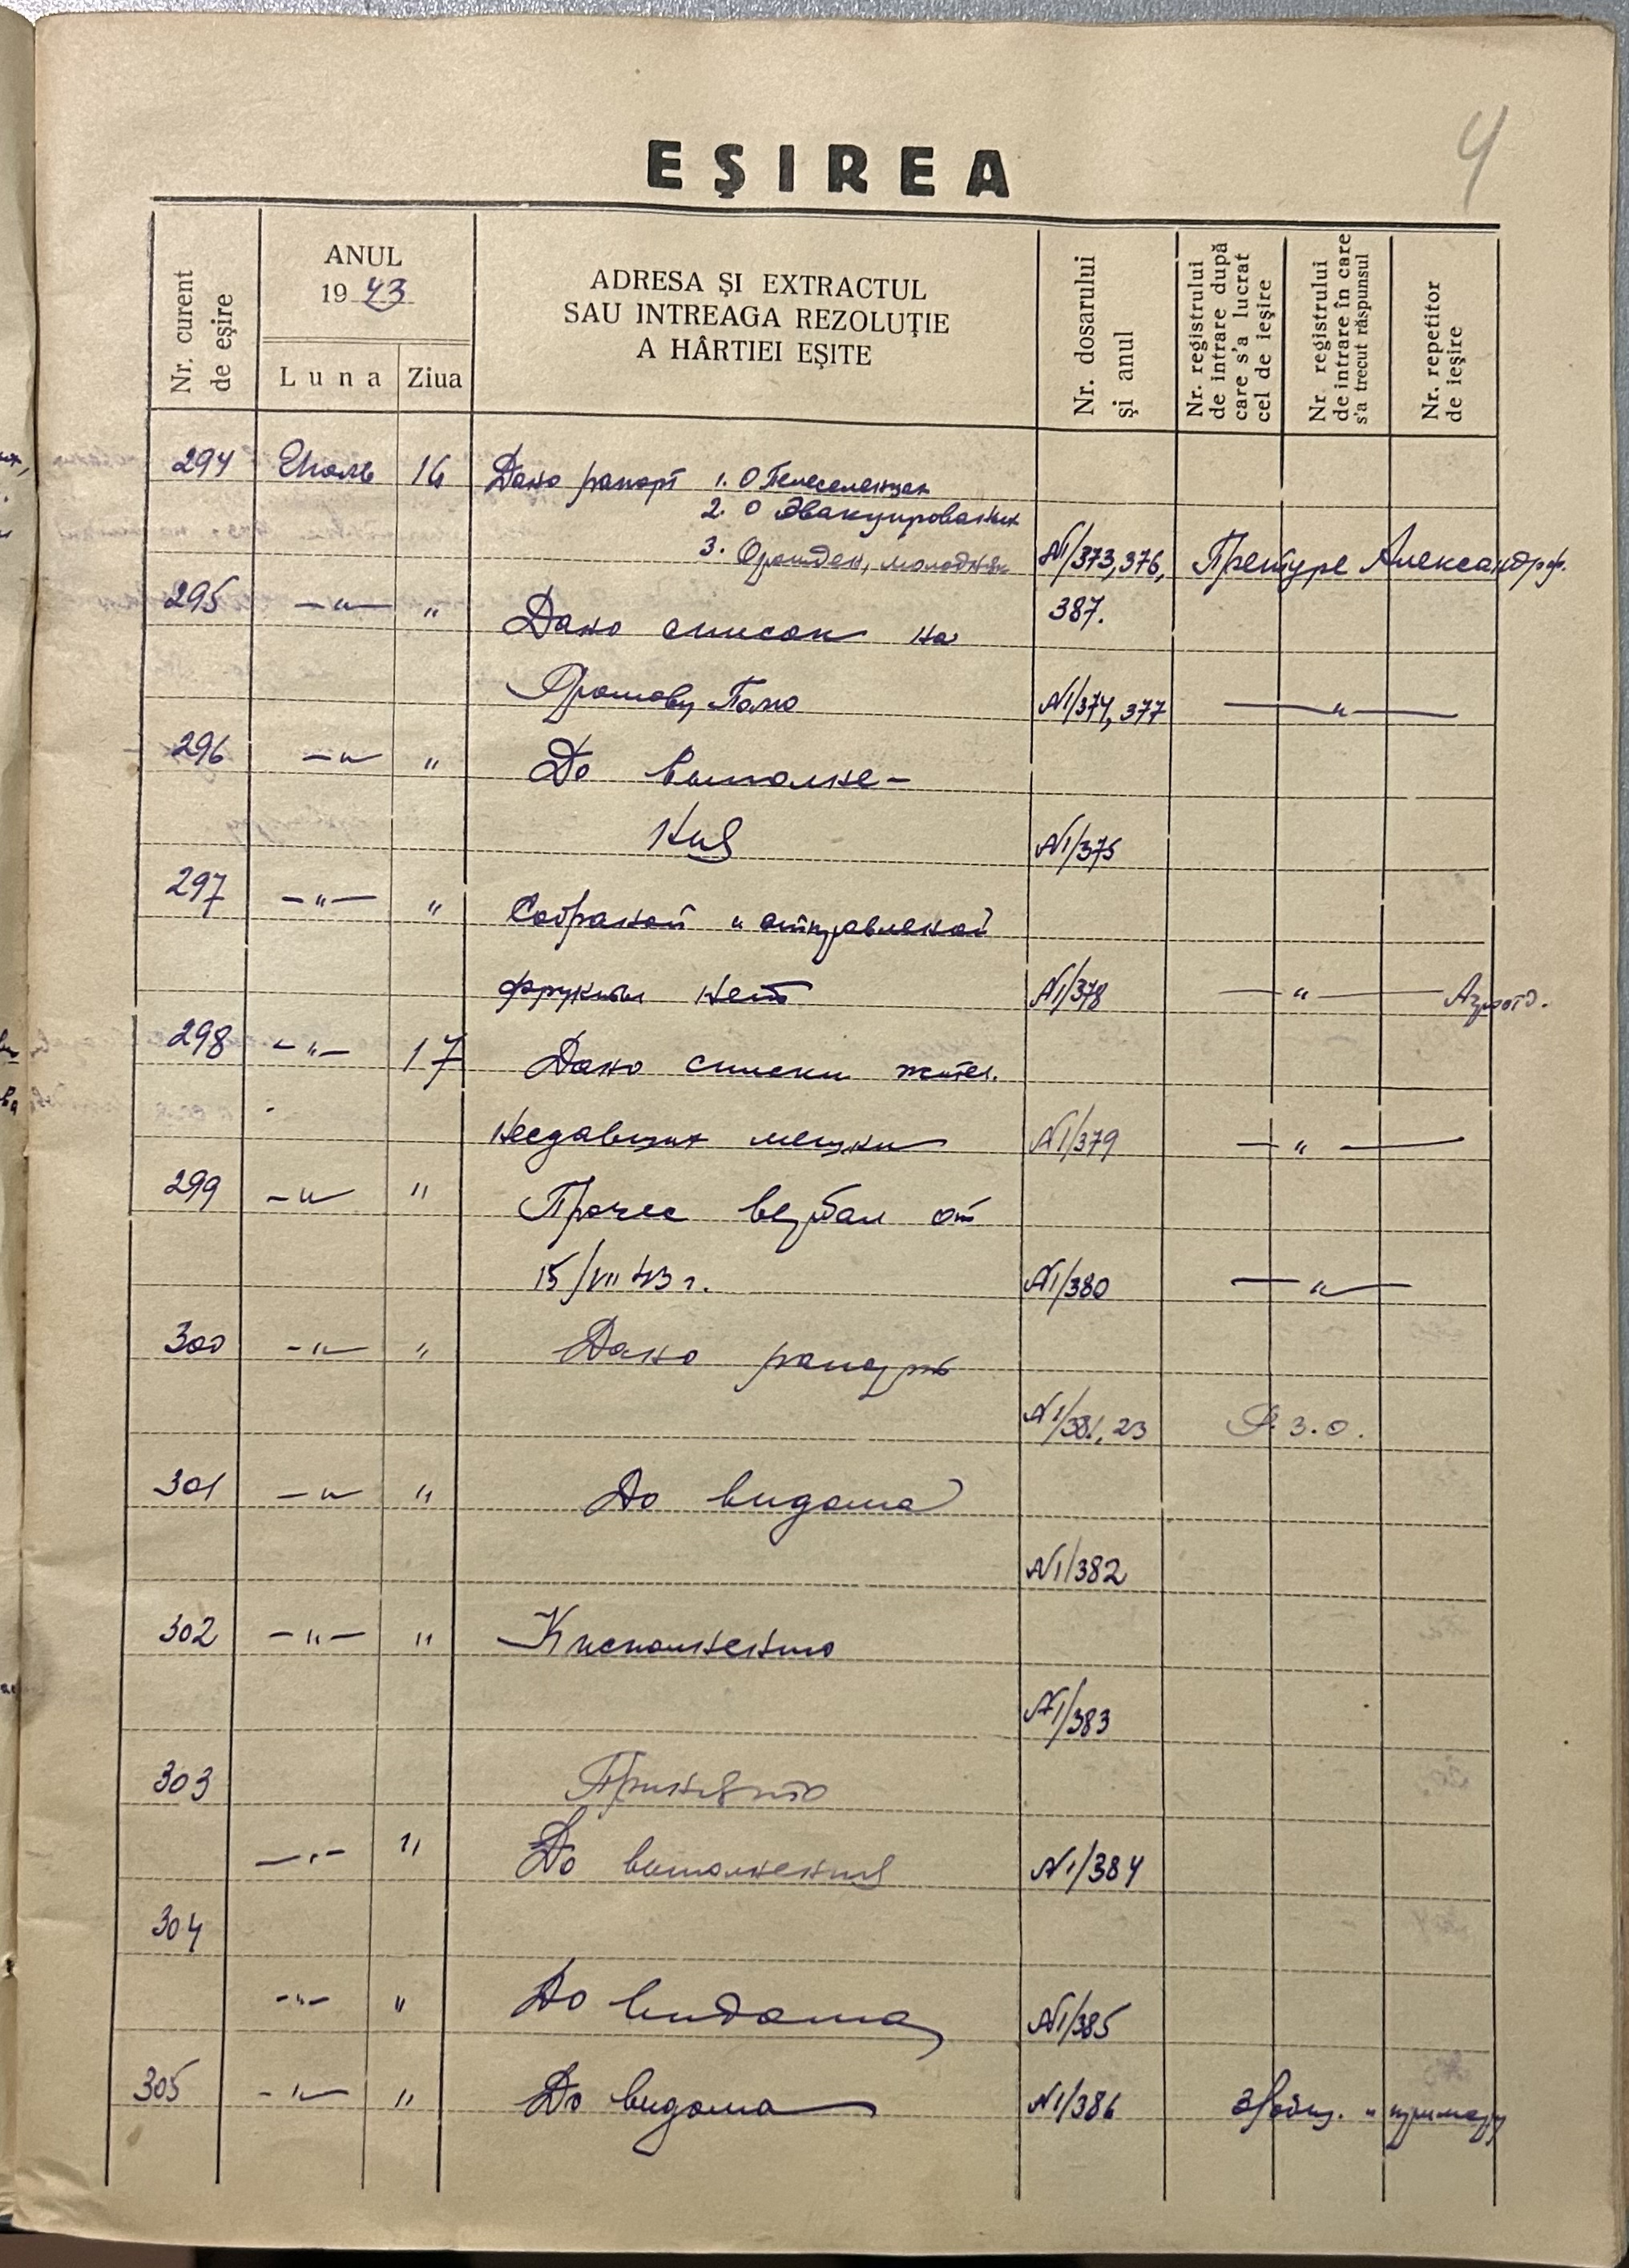 4
EŞIREA
Nr. curent de eşire
ANUL
19 43
Luna
Ziua
ADRESA ŞI EXTRACTUL
SAU INTREAGA REZOLUŢIE
A HÂRTIEI EŞITE
Nr. dosarului şi anul
Nr. registrului de intrare după care s'a lucrat cel de ieşire
Nr. registrului de intrare în care s'a trecut răspunsul
Nr. repetitor de ieşire
294 Июль 16 Дано рапорт 1. О Переселенцах
2. О Эвакуированых
3. молодняк N1/373,376, Претуре Александрф.
295 —"— " Дано список на 387.
N1/374,377 —"—
296 —"— " До выполне-
ния N1/375
297 —"— " Собраной и отправленой
фрукты нет N1/378 —"— Агроотд.
298 —"— 17 Дано списки жител.
несдавших мешки N1/379 —"—
299 —"— " Прочес вербал от
15/VII 43 г. N1/380 —"—
300 —"— " Дано рапорт
N1/381,23 З.О.
301 —"— " До видома
N1/382
302 —"— " К исполнению
N1/383
303 Принято
—"— " До выполнения N1/384
304
—"— " До видома N1/385
305 —"— " До видома N1/386 и примару